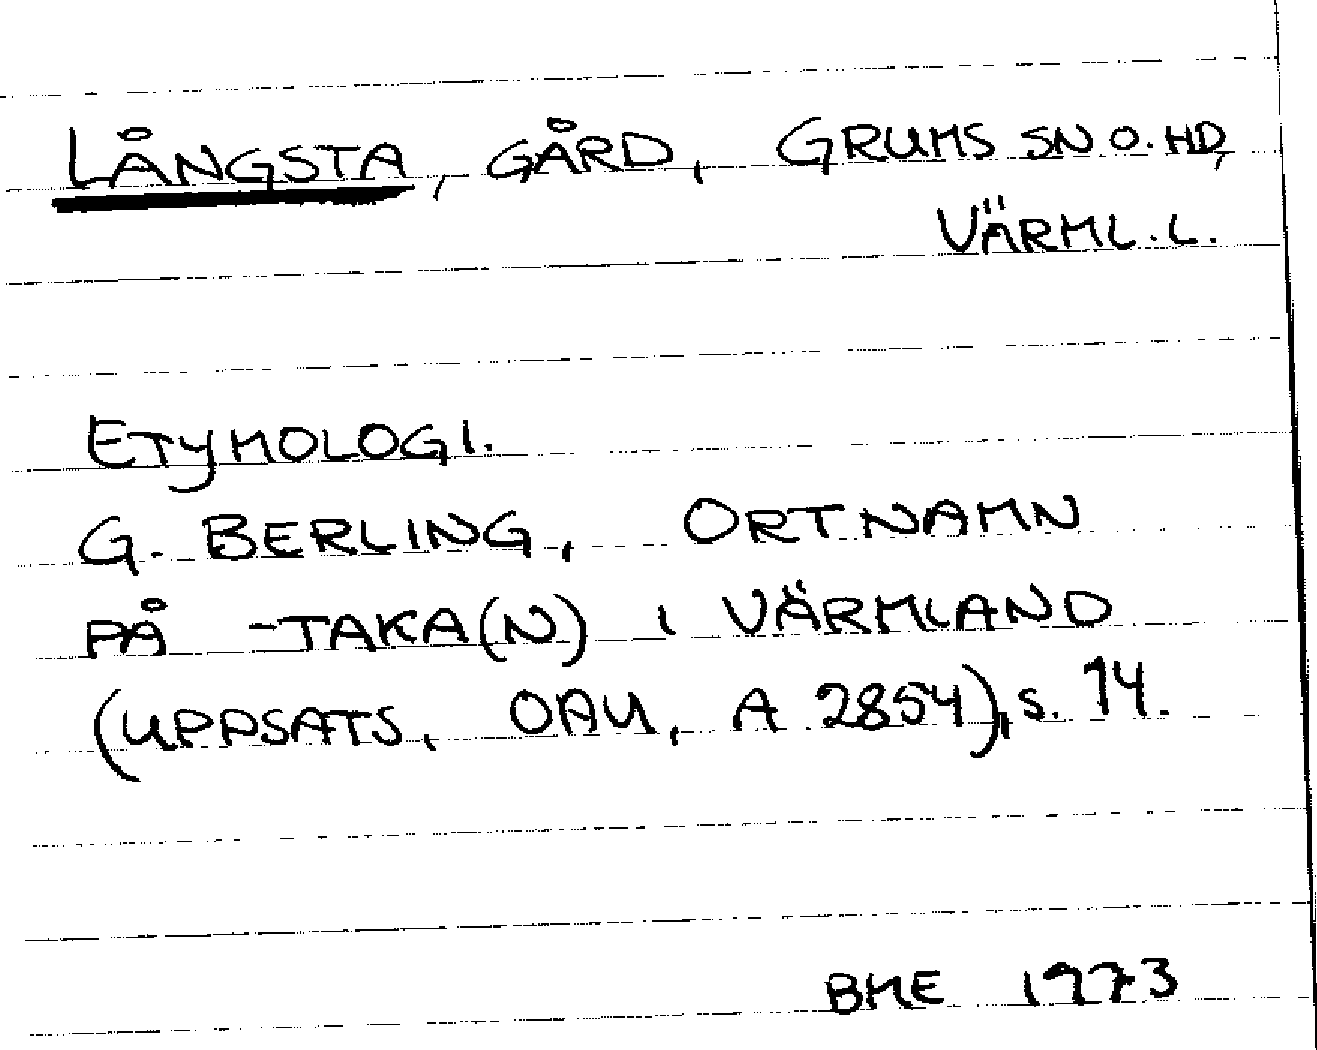 LÅNGSTA, GÅRD, GRUMS SN O. HD,
VÄRML. L.
ETYMOLOGI.
G. BERLING, ORTNAMN
PÅ -TAKA(N) I VÄRMLAND
(UPPSATS, OAU, A 2854), s. 14.
BME 1973